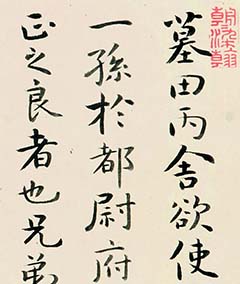 墓田丙舍欲使
一孫於都尉府
正之良者也兄弟